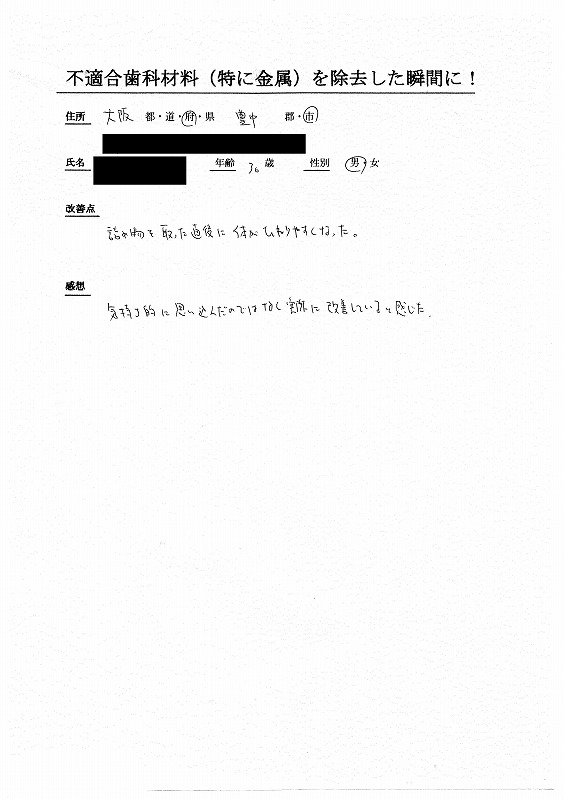 不適合歯科材料（特に金属）を除去した瞬間に！
住所 大阪 都・道・府・県 豊中 郡・市
氏名 年齢 30 歳 性別 男・女
改善点
詰め物を取った直後に体がひねりやすくなった。
感想
気持ち的に思い込んだのではなく実際に改善していると感じた。